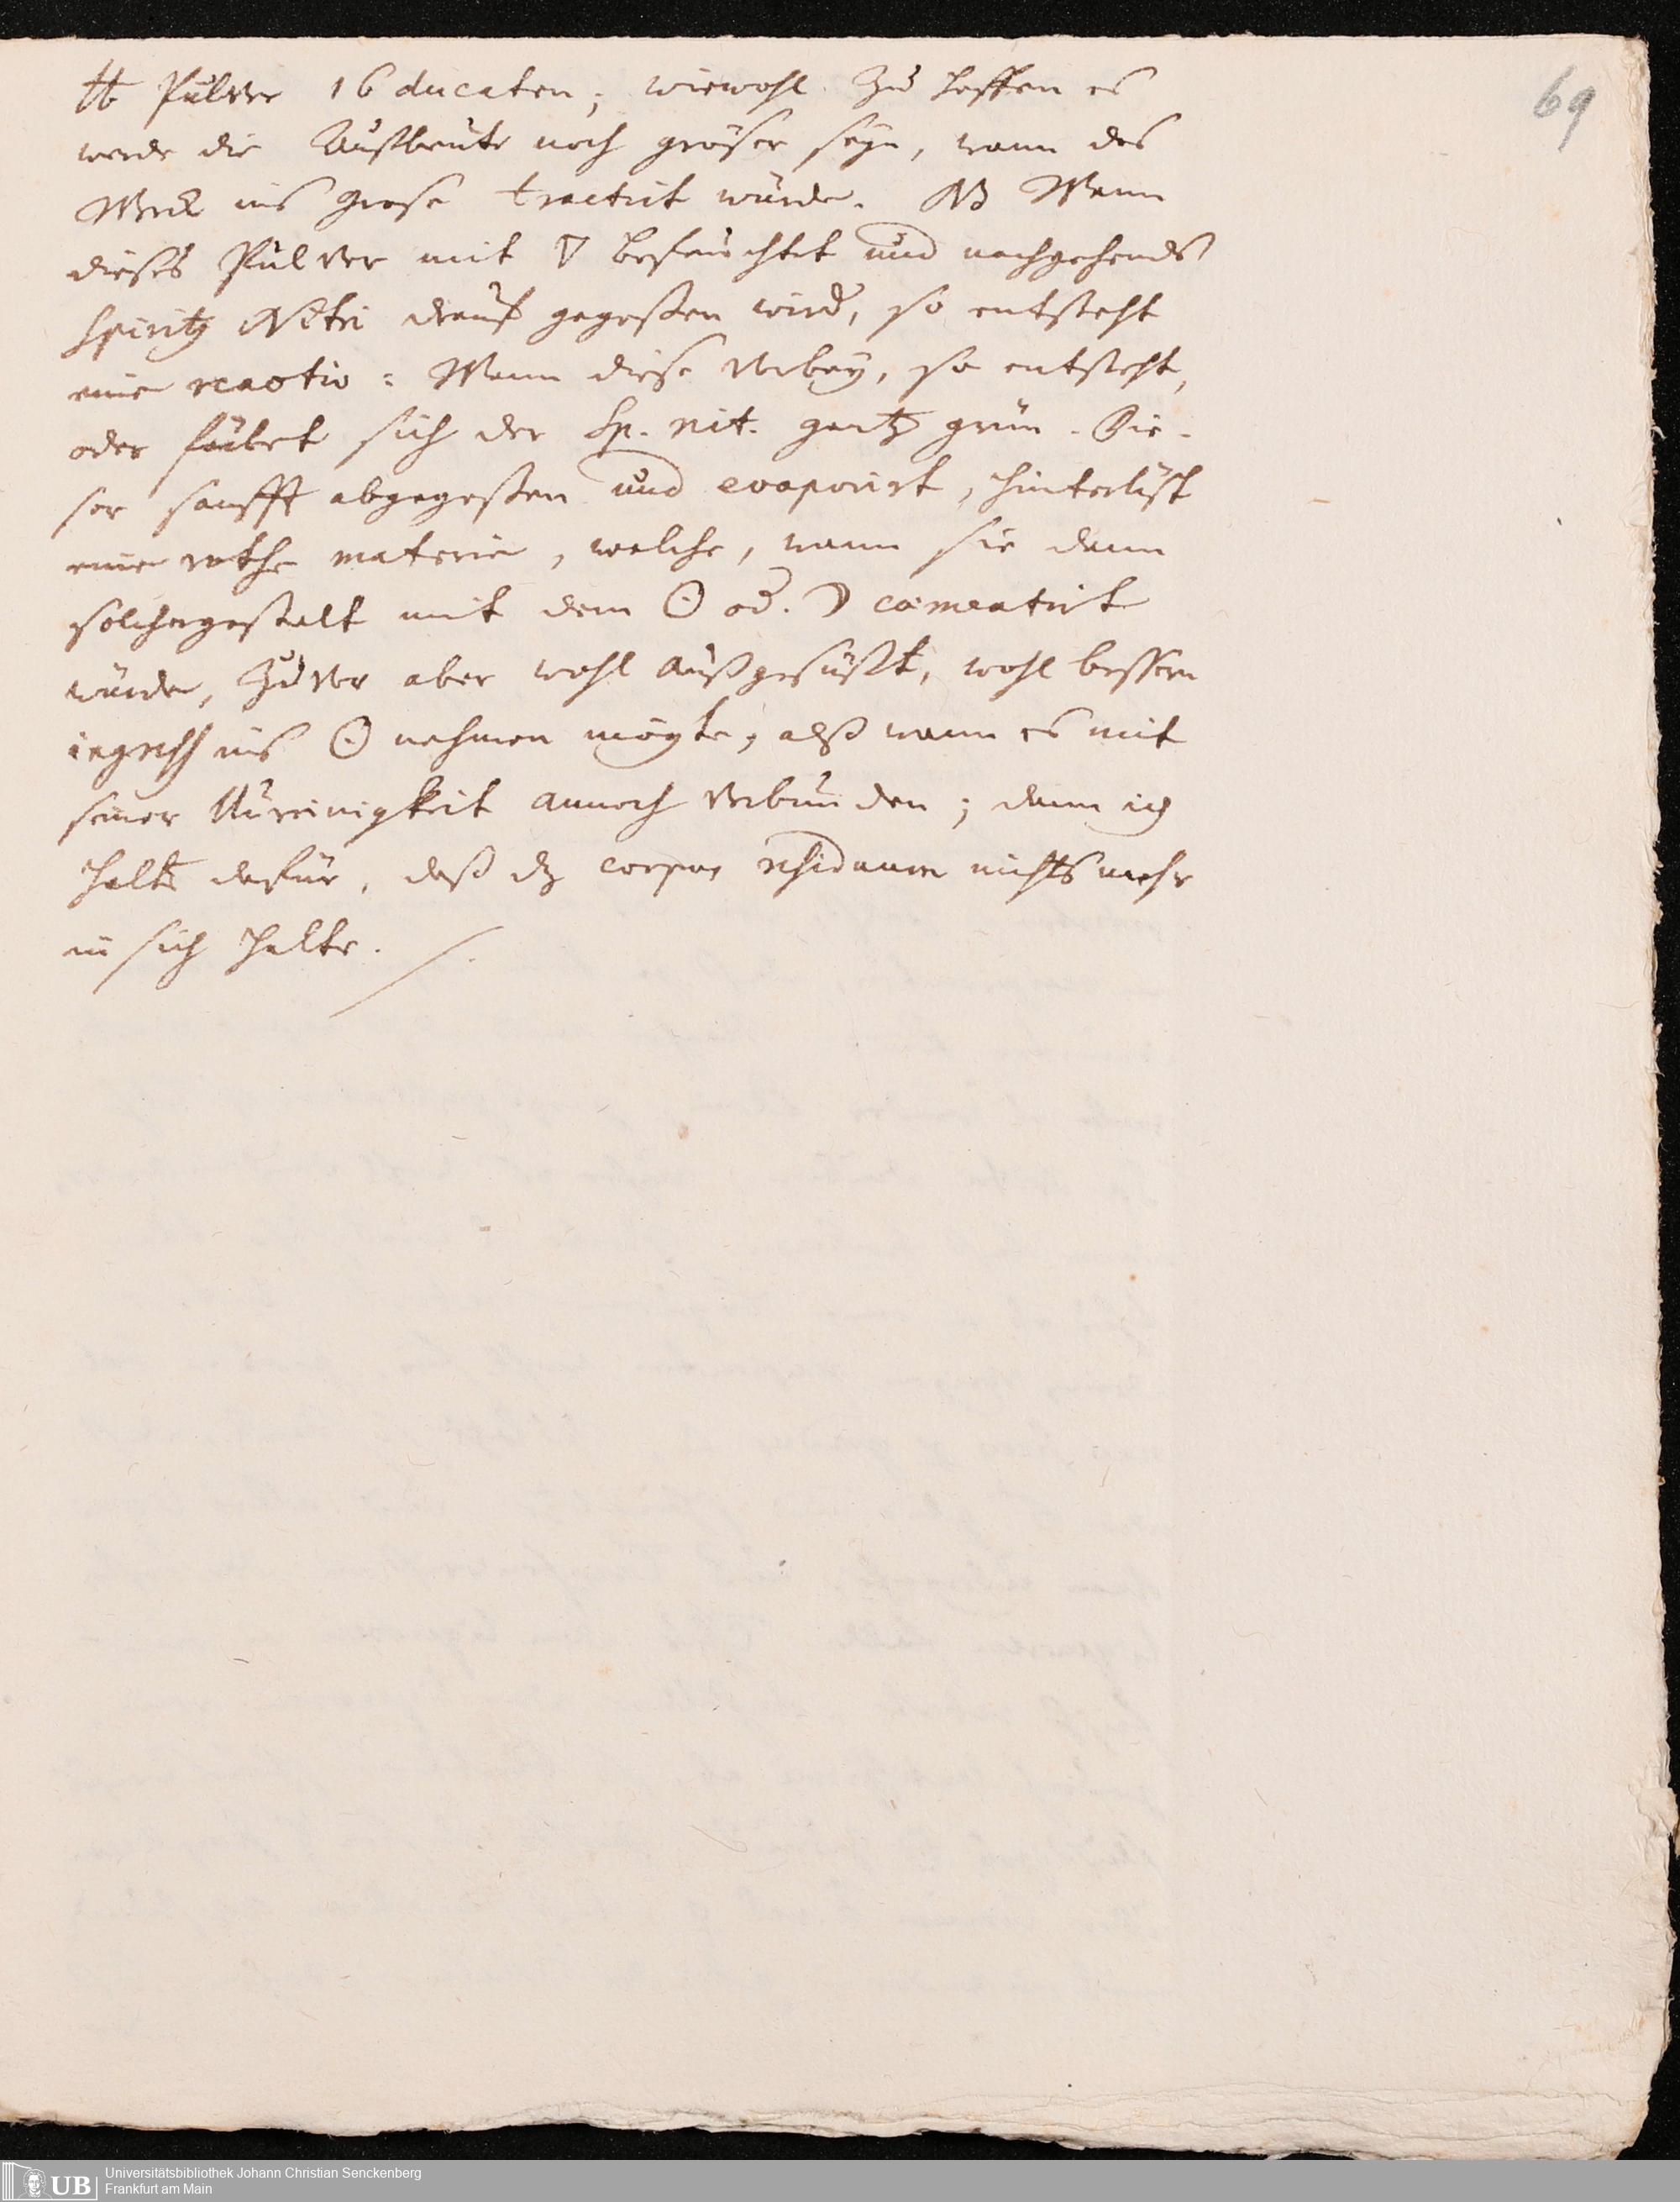 ℔ Pulver 16 ducaten; wiewohl zu hoffen es
werde die Außbeute noch gröser seyn, wann das
Werck ins grose tractirt würde. NB Wann
dieses Pulver mit 🜄 befeuchtet und nachgehends
Spirit9 Nitri drauf gegoßen wird, so entsteht
eine reactio: Wann diese vorbey, so entsteht,
oder färbet sich der Sp. nit. gantz grün. Die-
ser sanfft abgegoßen und evaporirt, hinterläst
eine rothe materie, welche, wann sie dann
solchergestalt mit dem ☉ od. ☽ cæmentirt
würde, zuvor aber wohl außgesüßt, wohl bessern
ingreß ins ☉ nehmen mögte, alß wann es mit
seiner Unreinigkeit annoch verbunden; dann ich
halte dafür, daß dz corpus residuum nichts mehr
in sich halte.
69
UB
Universitätsbibliothek Johann Christian Senckenberg
Frankfurt am Main